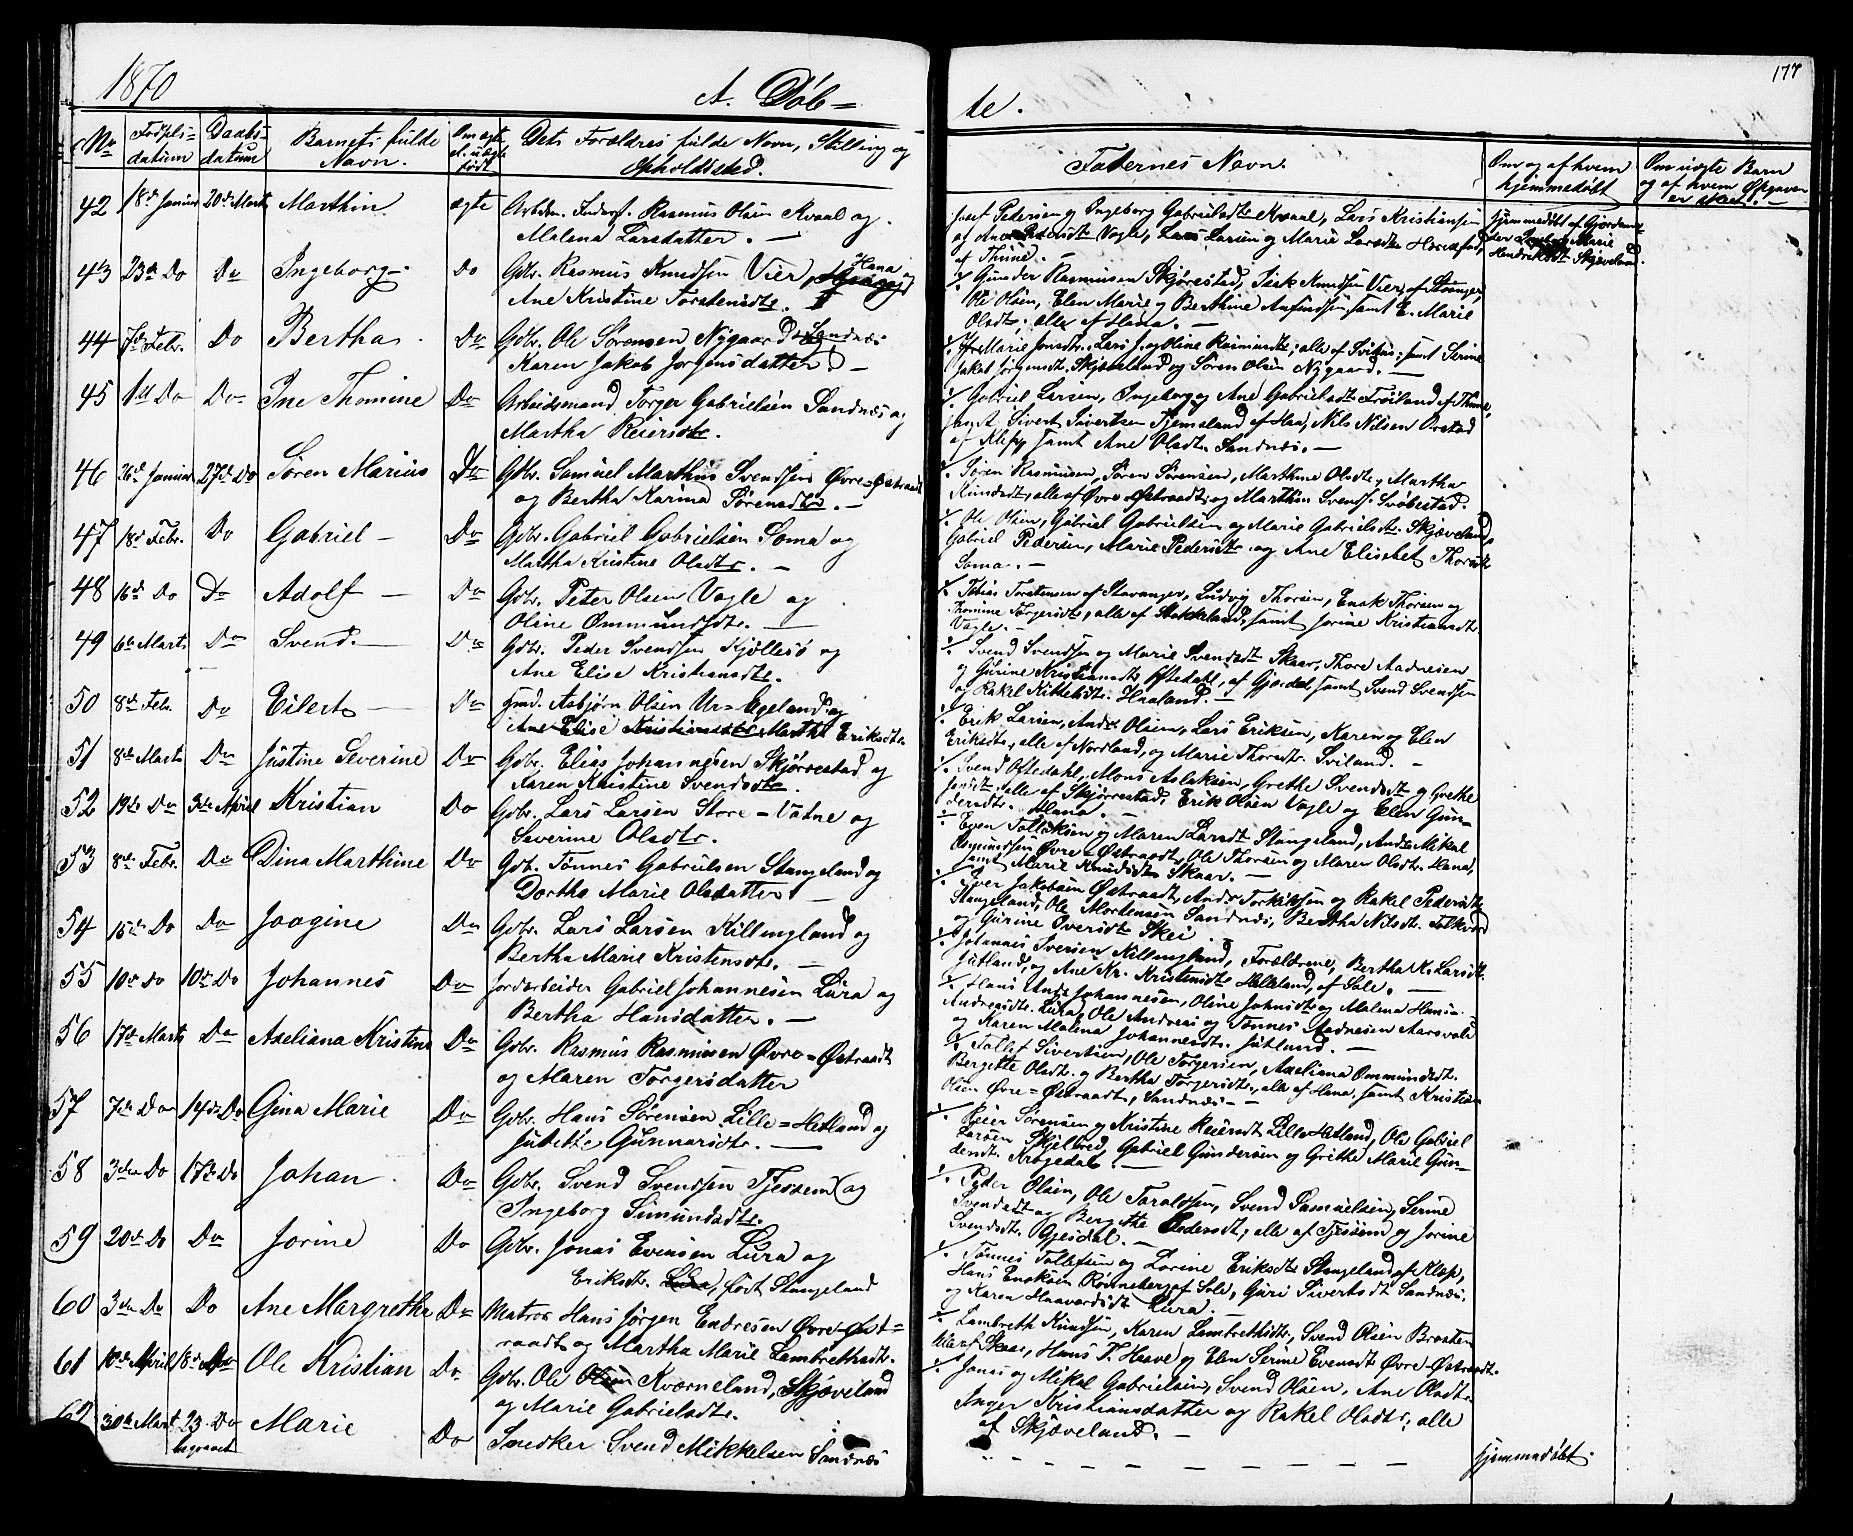 1870
A. Döb=
te.
177
No
Fødsels-
datum
Daabs-
datum
Barnets fulde
Navn.
Om ægte
el. uægte
født
Dets Forældres fulde Navn, Stilling og
Opholdssted.
Faddernes Navn.
Om og af hvem
hjemmedøbt
Om uægte Barn
og af hvem Opgaven
er skeet.
42 18de Januar 20de Marts Marthin ægte Arbdm. Inderst. Rasmus Olsen Kvaal og
Malena Larsdatter. —
Josef Pedersen og Ingeborg Gabrielsdtr. Kvaal, Lars Kristiansen
og Ane Vagle, Lars Larsen og Marie Larsdtr.
af Thime. —
hjemmedøbt af Gjordemo-
der Marie
Hendriksdtr. Skjæveland.
43 23de Do Do Ingeborg — Do Gdbr. Rasmus Knudsen Vier, Hana og
Ane Kristine Torstensdtr.
Gunder Rasmussen Skjørestad, Knudsen Vier, af Stavanger,
Ole Olsen, Elen Marie og Berthine samt E. Marie
Olsdtr., alle af Hana. —
44 7de Febr. Do Bertha Do Gdbr. Ole Sørensen Nygaard Sandnæs
Karen Jakob Jørgensdatter —
Marie Jonsdtr. Lars J. og Oline Rasmusdtr., alle af Sviland, samt Serine
Jakob Jørgensdt. Skjæveland og Søren Olsen Nygaard. —
45 1ste Do Do Ine Thomine Do Arbeidsmand Torger Gabrielsen Sandnæs og
Martha Reiersdtr.
Gabriel Larsen, Ingeborg og Ane Gabrielsdtr. Frøiland af Thime,
samt Sivert Sivertsen Tjemsland af Haa, Nils Nilsen Orstad
af Klepp samt Ane Olsdtr. Sandnæs. —
46 26de Januar 27de Do Søren Marius Do Gdbr. Samuel Marthins Svendsen Øvre=Østraadt
og Bertha Karina Sørensdtr. —
Søren Rasmussen, Søren Sørensen, Marthine Olsdtr., Martha
Knudsdt., alle af Øvre Østraadt, og Marthin Svends. Svøbestad.
47 18de Febr. Do Gabriel — Do Gdbr. Gabriel Gabrielsen Soma og
Martha Kristine Olsdtr. —
Ole Olsen, Gabriel Gabrielsen og Marie Gabrielsdtr. Skjæveland,
Gabriel Pedersen, Marie Pedersdtr. og Ane Elisabet Thorsdt.
Soma. —
48 16de Do Do Adolf — Do Gdbr. Peter Olsen Vagle og
Oline Ommundsdtr. —
Tobias Torstensen af Stavanger, Ludvig Thorsen, Enok Thorsen og
Thomine Torgersdtr., alle af Stokkeland, samt Jorine Kristiansdtr.
Vagle. —
49 6te Marts Do Svend. — Do Gdbr. Peder Svendsen Kjøllesø og
Ane Elise Kristiansdtr.
Svend Svendsen og Marie Svendsdt. Skaar, Thore Aadnesen
og Gurine Kristiansdtr. Oftedahl, af Gjesdal, samt Svend Svendsen
og Rakel Kittelsdtr. Haaland. —
50 8de Feb. Do Eilert — Do Gmd. Asbjørn Olsen Ur= Egeland og
Ane Elise Kristiansdtr. Martha Eriksdtr.
Erik Larsen, Andr. Olsen, Lars Eriksen, Karen og Elen
Eriksdtr., alle af Nordland, og Marie Thorsdtr. Sviland. —
51 8de Marts Do Justine Severine Do Gdbr. Elias Johannesen Skjørrestad og
Karen Kristine Svendsdtr.
Svend Oftedahl, Mons Aslaksen, Grethe Svendsdt. og Grethe
Jonsdt., alle af Skjørrestad, Erik Olsen Vagle og Elen Gun-
dersdt. Hana. —
52 19de Do 3die April Kristian Do Gdbr. Lars Larsen Store=Vatne og
Severine Olsdtr.
Even Tollaksen og Maren Larsdt. Stangeland, Andr. Mikal
Øvre=Østraadt, Ole Thorsen og Maren Olsdtr. Hana,
samt Marie Knudsdtr. Skaar. —
53 8de Febr. Do Dina Marthine Do Gdb. Tønnes Gabrielsen Stangeland og
Dorthe Marie Olsdatter —
Iver Jakobsen Østraadt, Andr. Torkildsen og Rakel Pedersdtr.
Stangeland, Ole Mortensen Sandnæs, Bertha Nilsdt. Folkvord
og Gurine Iversdtr. Skei
54 15de Do Do Joogine Do Gdbr. Lars Larsen Killingland og
Bertha Marie Kristensdtr. —
Johannes Iversen Killingland, Forældrene, Bertha K. Larsdt.
Jutland, og Ane Kr. Kristensdtr. Helleland, af Sole. —
55 10de Do 10de Do Johannes Do Jordarbeider Gabriel Johannesen Lura og
Bertha Hansdatter. —
Hans Andr. Johannesen, Oline Johnsdt. og Malena Hans-
Andreasdt. Lura, Ole Andreas og Tønnes Aadnesen Aarsvold
og Karen Malena Johannesdt. Jutland. —
56 17de Marts Do Axeliana Kristine Do Gdbr. Rasmus Rasmussen Øvre=Østraadt
og Maren Torgersdatter
Tollef Sivertsen, Ole Torgersen, Axeliana Ommundsdt.
Bergitte Olsdt. og Bertha Torgersdtr., alle af Hana, samt Kristian
Olsen Øvre=Østraadt, Sandnæs. —
57 7de Do 14de Do Gina Marie Do Gdbr. Hans Sørensen Lille=Hetland og
Jubitte Gunnarsdtr. —
Reier Sørensen og Kristine Reiersdt. Lille Hetland, Ole Gabriel
Larsen Skjelbred, Gabriel Gundersen og Grethe Marie Gun-
dersdt. Krogedal. —
58 3die Do 17de Do Johan Do Gdbr. Svend Svendsen Tjessem og
Ingeborg Simundsdtr.
Peder Olsen, Ole Taraldsen, Svend Samuelsen, Serine
Svendsdt. og Bergithe Pedersdt., alle af Tjessem og Jorine
Svendsdt. Gjesdal. —
59 20de Do Do Jorine Do Gdbr. Jonas Evensen Lura og
Eriksdtr. Lura, født Stangeland
Tønnes Tollefsen og Lorine Eriksdt. Stangeland af Klep,
Hans Enoksen Rønneberg af Sole, Guri Sivertsdt. Sandnæs.
og Karen Haavardsdt. Lura. —
60 3die Do Do Ane Margretha Do Matros Hans Jørgen Endresen Øvre=Øst=
raadt og Martha Marie Lambrethsdtr.
Lambreth Knudsen, Karen Lambrethsdtr., Svend Olsen Braaten
alle af Skaar, Hans T. Haave og Elen Serine Evensdt. Øvre=Østraadt.
61 10de April 18de Do Ole Kristian Do Gdbr. Ole Olsen Kværneland, Skjæveland
og Marie Gabrielsdtr.
Jonas og Mikal Gabrielsen, Svend Olsen, Ane Olsdtr.
Inger Kristiansdatter og Rakel Olsdtr.; alle
af Skjæveland. —
62 30de Marts 23. Do Marie Do Snedker Svend Mikkelsen Sandnæs
begravet
hjemmedøbt.